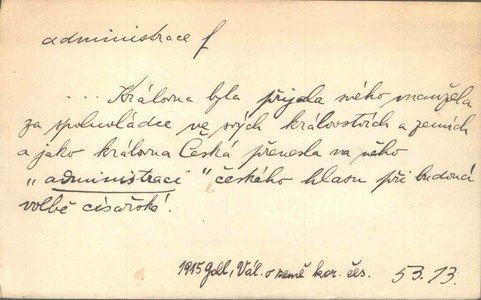 administrace f
... Královna byla přijala svého manžela
za spoluvládce ve svých královstvích a zemích
a jako královna Česká přenesla na něho
„administraci" českého hlasu při budoucí
volbě císařské.
1915 Gdl, Vál. o země kor. čes. 53. 13.